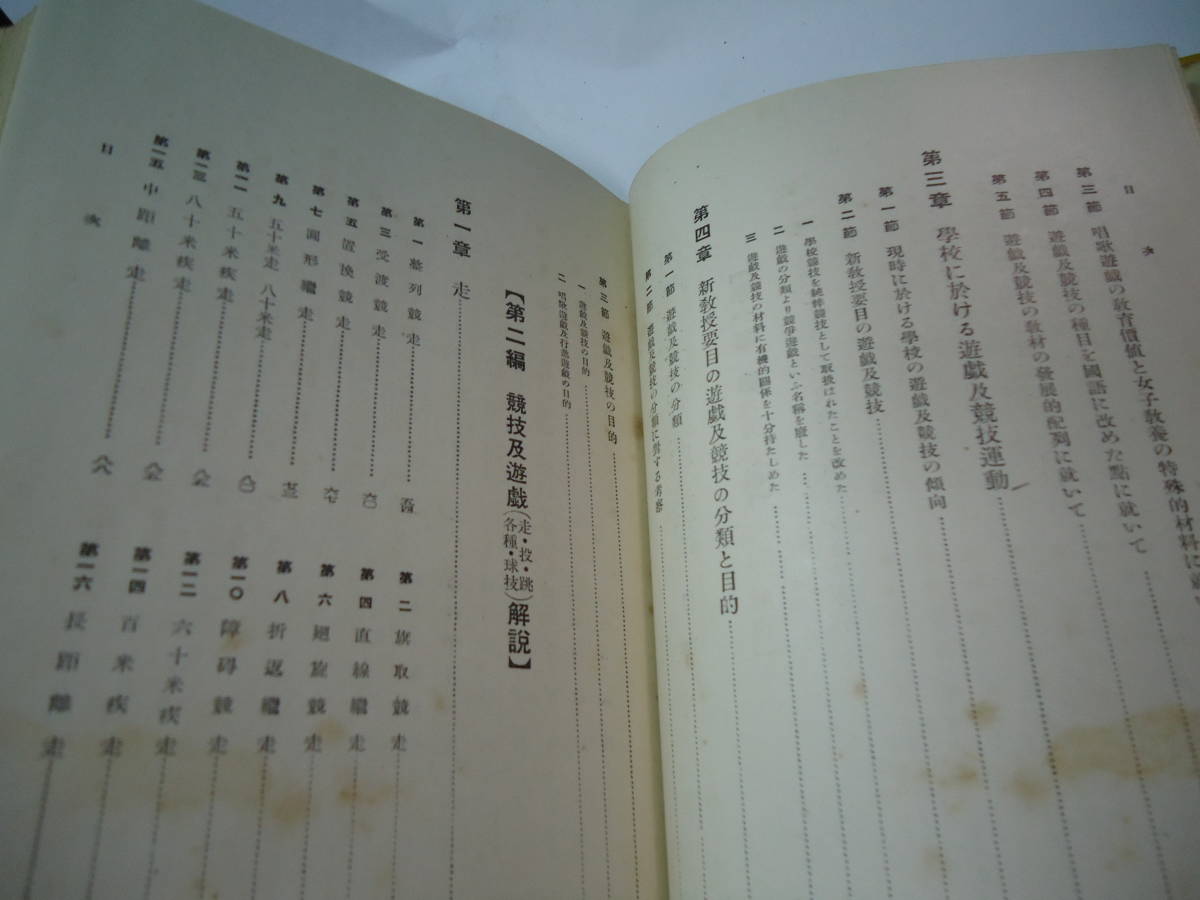 目次
第三節 唱歌遊戯の教育價値と女子教養の特殊的材料に就い
第四節 遊戯及競技の種目を國語に改めた點に就いて
第五節 遊戯及競技の教材の發展的配列に就いて
第三章 學校に於ける遊戯及競技運動
第一節 現時に於ける學校の遊戯及競技の傾向
第二節 新教授要目の遊戯及競技
一 學校競技を純粋競技として取扱はれたことを改めた
二 遊戯の分類より競爭遊戯といふ名稱を廢した
三 遊戯及競技の材料に有機的關係を十分持たしめた
第四章 新教授要目の遊戯及競技の分類と目的
第一節 遊戯及競技の分類
第二節 遊戯及競技の分類に對する考察
第三節 遊戯及競技の目的
一 遊戯及競技の目的
二 唱歌遊戯及行進遊戯の目的
【第二編 競技及遊戯(走・投・跳各種・球技)解說】
第一章 走
第一 慕列競走
第二 旗取競走
第三 受渡競走
第四 直線繼走
第五 置換競走
第六 廻旋競走
第七 圓形繼走
第八 折返繼走
第九 五十米走 八十米走
第一〇 障碍競走
第一一 五十米疾走
第一二 六十米疾走
第一三 八十米疾走
第一四 百米疾走
第一五 中距離走
第一六 長距離走
目次